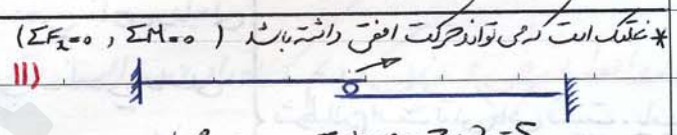 * غلتک است که می تواند حرکت افقی داشته باشد ( ΣFx=0 , ΣM=0 )
11)